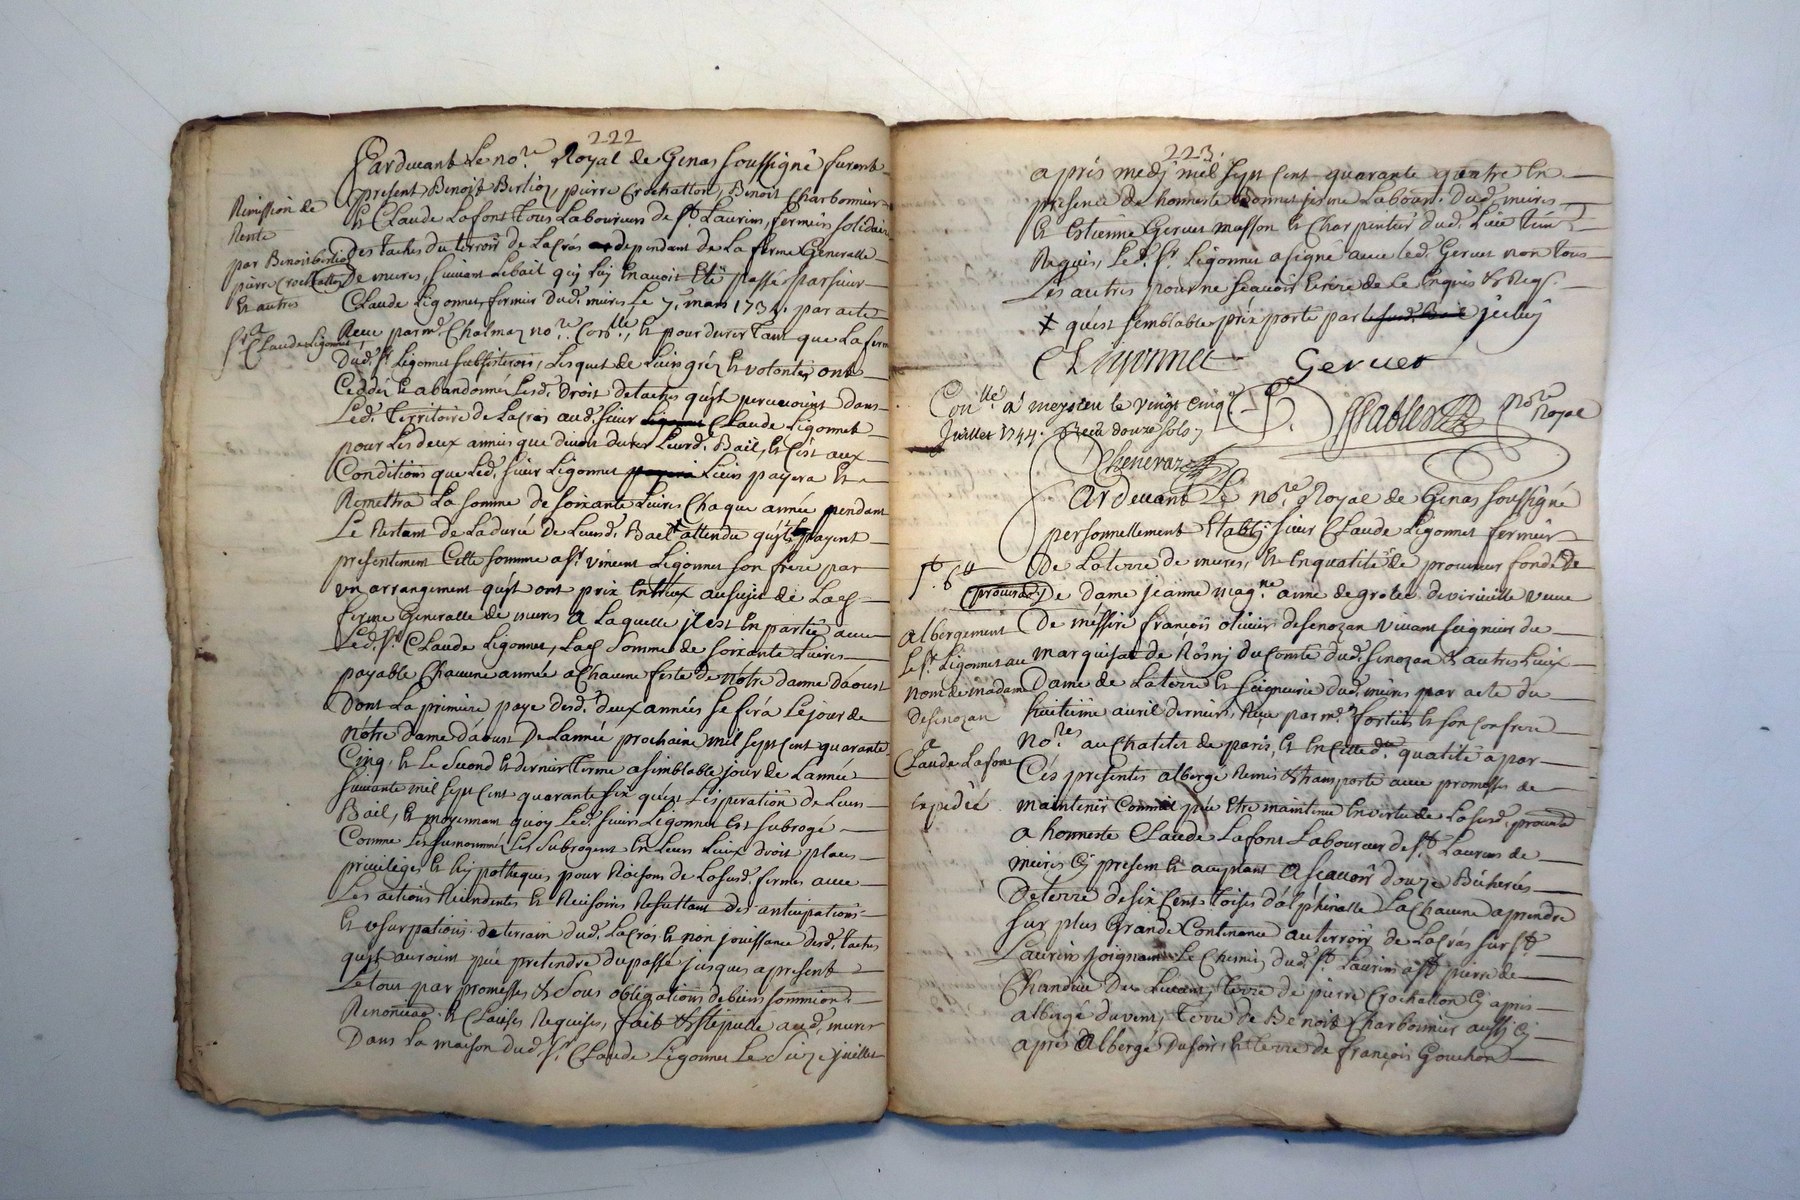 222
Pardevant Le no.re Royal de Genas soussigné furent
present Benoit Berlioz, pierre Crochatton, Benoit Charbonnier
Et Claude Lafont Tous Laboureurs de st. Laurins, fermiers solidaires
Des taches du terroir de Lacrós dependant de La ferme Generalle
De mures, suivant Le bail quj Luj En avoit Eté passé par sieur
Claude Ligonnet fermier dud. mures Le 7. mars 1734. par acte
Receu par me. Chalmas no.re et pour durer Tant que La ferme
Dud. sr. Ligonnet subsisteroit, Lesquels de Leurs gréz Et volontés ont
Ceddé Et abandonné Lesd. Droit de taches quils percevoint dans
Led. Territoire de Lacrós aud. sieur Claude Ligonnet
pour Les deux années que devoit durer Leurd. Bail, et C'est aux
Conditions que Led. sieur Ligonnet Leur payera Et
Remettra La somme de soixante Livres Chaque année pendant
Le Restant de La durée De Leursd. Bail attendu quils payent
presentement Cette somme a sr. vincent Ligonnet son frere par
un arrangement quils ont prix Entreux au sujet de Lad.
ferme Generalle de mures a Laquelle jl est En partie avec
Led. sr. Claude Ligonnet, Lad. Somme de soixante Livres
payable Chacune année a Chacune feste de nótre dame d'aoust
Dont La premiere paye desd. deux années se fera Le jour de
nótre dame d'aoust De L'année prochaine mil sept cent quarante
Cinq, et Le second Et dernier terme a semblable jour de L'année
suivante mil sept cent quarante six quest L'esperation de Leur
Bail, Et moyennant quoy Led. sieur Ligonnet Est subrogé
Comme Les surnommés Les subrogent En Leurs Lieux droit places
privilèges Et hipotheques pour Raisons de Lasusd. ferme avec
Les actions Rescindentes Et Rescisoires Resultant des anticipations
Et usurpations de terrain dud. Lacrós Et non jouissance desd. taches
quils auroient pûe pretendre du passé jusques a present
Le tout par promesses & Sous obligations de biens sommions.
Renonciaôn. Et Clauses Requises, fait & stipullé aud. mures
Dans la maison dud. sr. Claude Ligonnet Le Seize juillet
Remission de
Rente
par Benoit berlioz
pierre Crochatton
Et autres
a
sr. Claude Ligonnet
223.
aprés medj mil sept Cent quarante quatre En
presence de honneste Labour. dud. mures
Et Estienne Gervet masson Et Charpentier dud. Lieu Tém.
Requis, Led. sr. Ligonnet a signé avec led. Gervet non tous
Les autres pour ne scavoir Ecrire de Ce Enquis & Req.
quest semblable prix porte par jceluy
C Ligonnet Gervet
Con.llé a meyzieu le vingt cinq
Juillet 1744. Receu douze sols
Sablet No.re Royal
Chenevaz
Pardevant Le no.re Royal de Genas soussigné
personnellement Etably sieur Claude Ligonnet fermier
De La terre de mures, Et En qualité de procureur fondé de
De dame jeanne mag.ne anne de grolée de virieille veuve
De méssire françois olivier de senozan vivant seigneur du
marquisat de Rósnj du Comté dud. senozan & autres Lieux
Dame de La terre Et seigneurie dud. mures par acte du
huitieme avril dernier, Receu par me. fortier et son Confrere
No.res au Chatelet de paris, Et En Cette d. qualité a par
Cés presentes albergé Remis & transporté avec promesses de
maintenir pûe Etre maintenue En vertu de Lasusd. procurâ
a honneste Claude Lafont Laboureur de st. Laurins de
mures Cj present Et acceptant a scavoir douze Bicherés
De terre de six Cent toises delphinalle La Chacune aprendre
sur plus grande Contenance au terroir de Lacrós sur st.
Laurins joignant Le Chemin dud. st. Laurins a st. pierre de
Chandieu Du Levant, terre de pierre Crochatton Cj apres
albergé du vent, Terre de Benoit Charbonnier aussj Cj
aprés Albergé du soir, Et terre de françois Gouchon
procurâon
albergement
Le sr. Ligonnet au
nom de madame
de senozan
a
Claude Lafont
Expedié